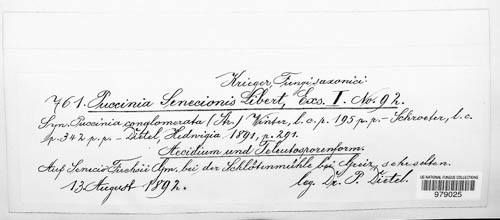 Krieger, Fungi saxonici
761. Puccinia Senecionis Libert, Exs. I. No. 92.
Syn. Puccinia conglomerata (Str.) Winter, l. c. p. 195 p. p. - Schroeter, l. c.
p. 342 p. p. - Dietel Hedwigia 1891, p. 291.
Aecidium und Teleutosporenform.
Auf Senecio Fuchsii Gm. bei der Schlötenmühle bei Greiz, sehr selten.
13 August 1892.
leg. Dr. P. Dietel.
US NATIONAL FUNGUS COLLECTIONS
979025